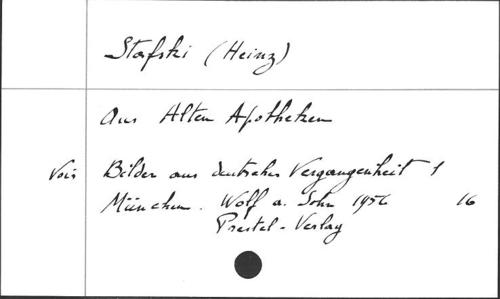 Stafski (Heinz)
Aus Alten Apotheken
Vois Bilder aus deutscher Vergangenheit 1
München. Wolf u. Sohn 1956 16
Prestel-Verlag